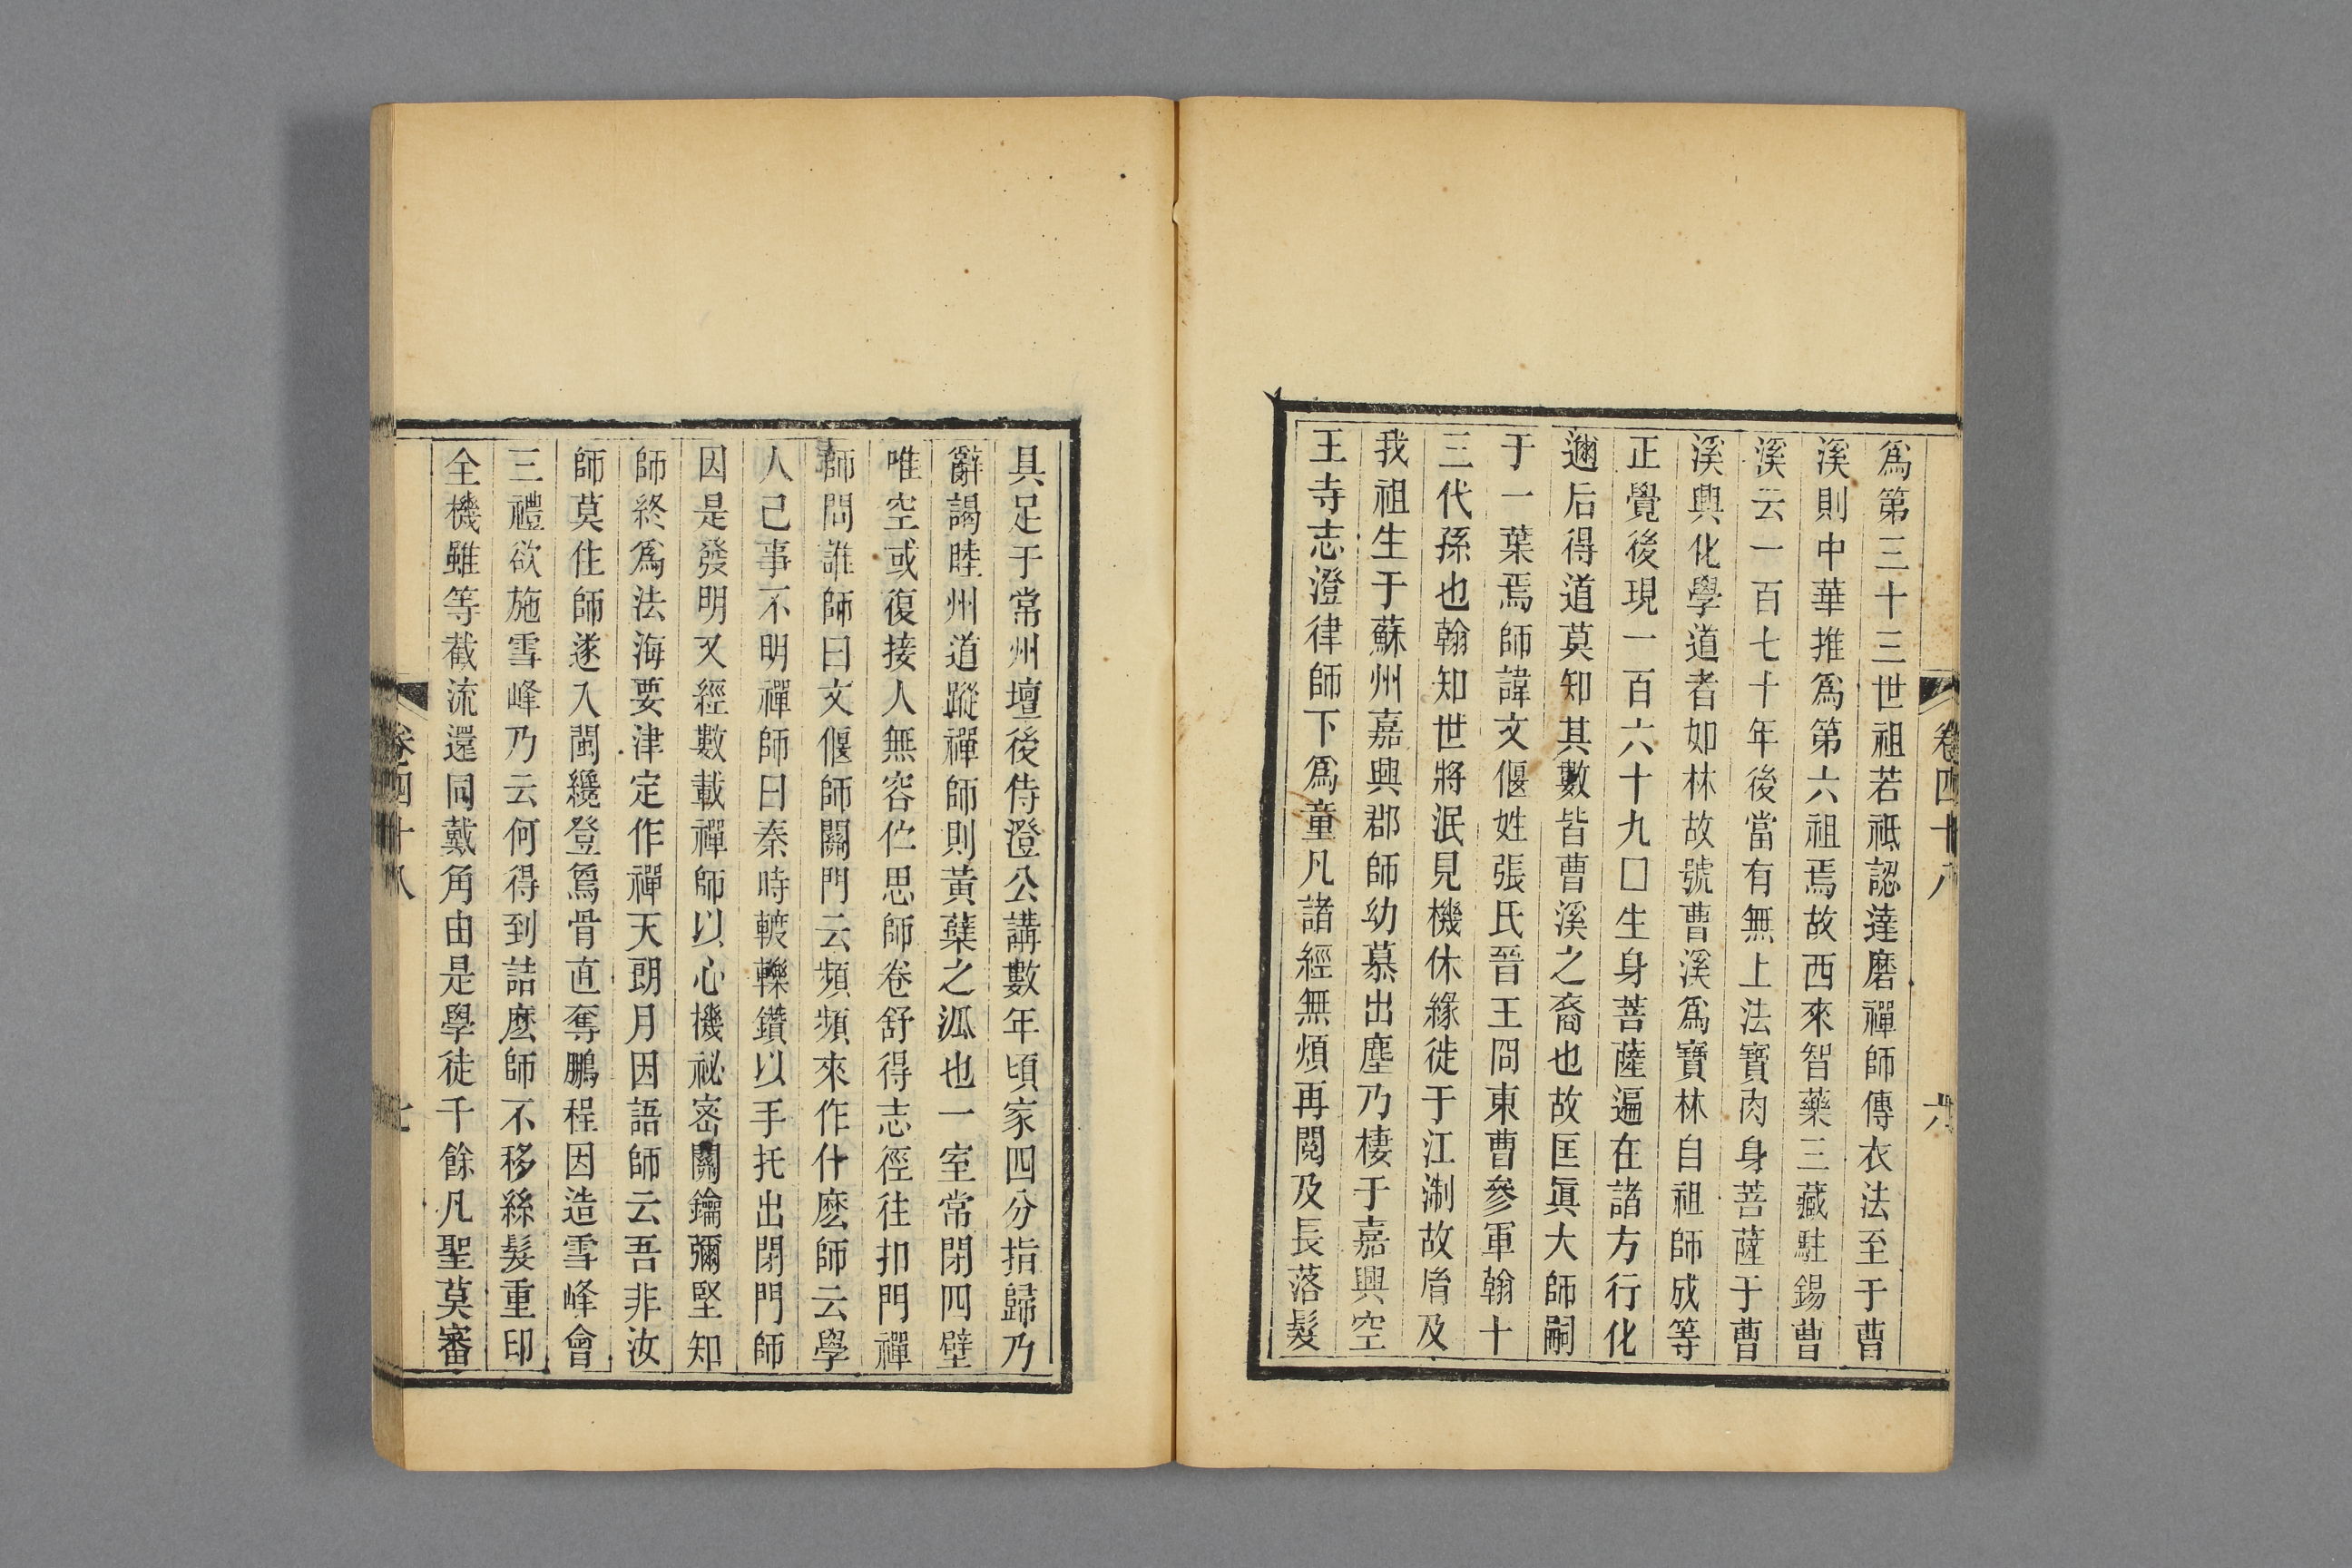 卷四十八
六
爲第三十三世祖若祗認達磨禪師傳衣法至于曹
溪則中華推爲第六祖焉故西來智藥三藏駐錫曹
溪云一百七十年後當有無上法寶肉身菩薩于曹
溪興化學道者如林故號曹溪爲寶林自祖師成等
正覺後現一百六十九□生身菩薩遍在諸方行化
邇后得道莫知其數皆曹溪之裔也故匡眞大師嗣
于一葉焉師諱文偃姓張氏晉王冏東曹參軍翰十
三代孫也翰知世將泯見機休緣徙于江淛故胄及
我祖生于蘇州嘉興郡師幼慕出塵乃棲于嘉興空
王寺志澄律師下爲童凡諸經無煩再閱及長落髮
具足于常州壇後侍澄公講數年頃家四分指歸乃
辭謁睦州道蹤禪師則黃蘗之泒也一室常閉四壁
唯空或復接人無容伫思師卷舒得志徑往扣門禪
師問誰師曰文偃師關門云頻頻來作什麽師云學
人己事不明禪師曰秦時𨍏轢鑽以手托出閉門師
因是發明又經數載禪師以心機祕密關鑰彌堅知
師終爲法海要津定作禪天朗月因語師云吾非汝
師莫住師遂入閩纔登鳬骨直奪鵬程因造雪峰會
三禮欲施雪峰乃云何得到詰麽師不移絲髮重印
全機雖等截流還同戴角由是學徒千餘凡聖莫審
卷四十八
七